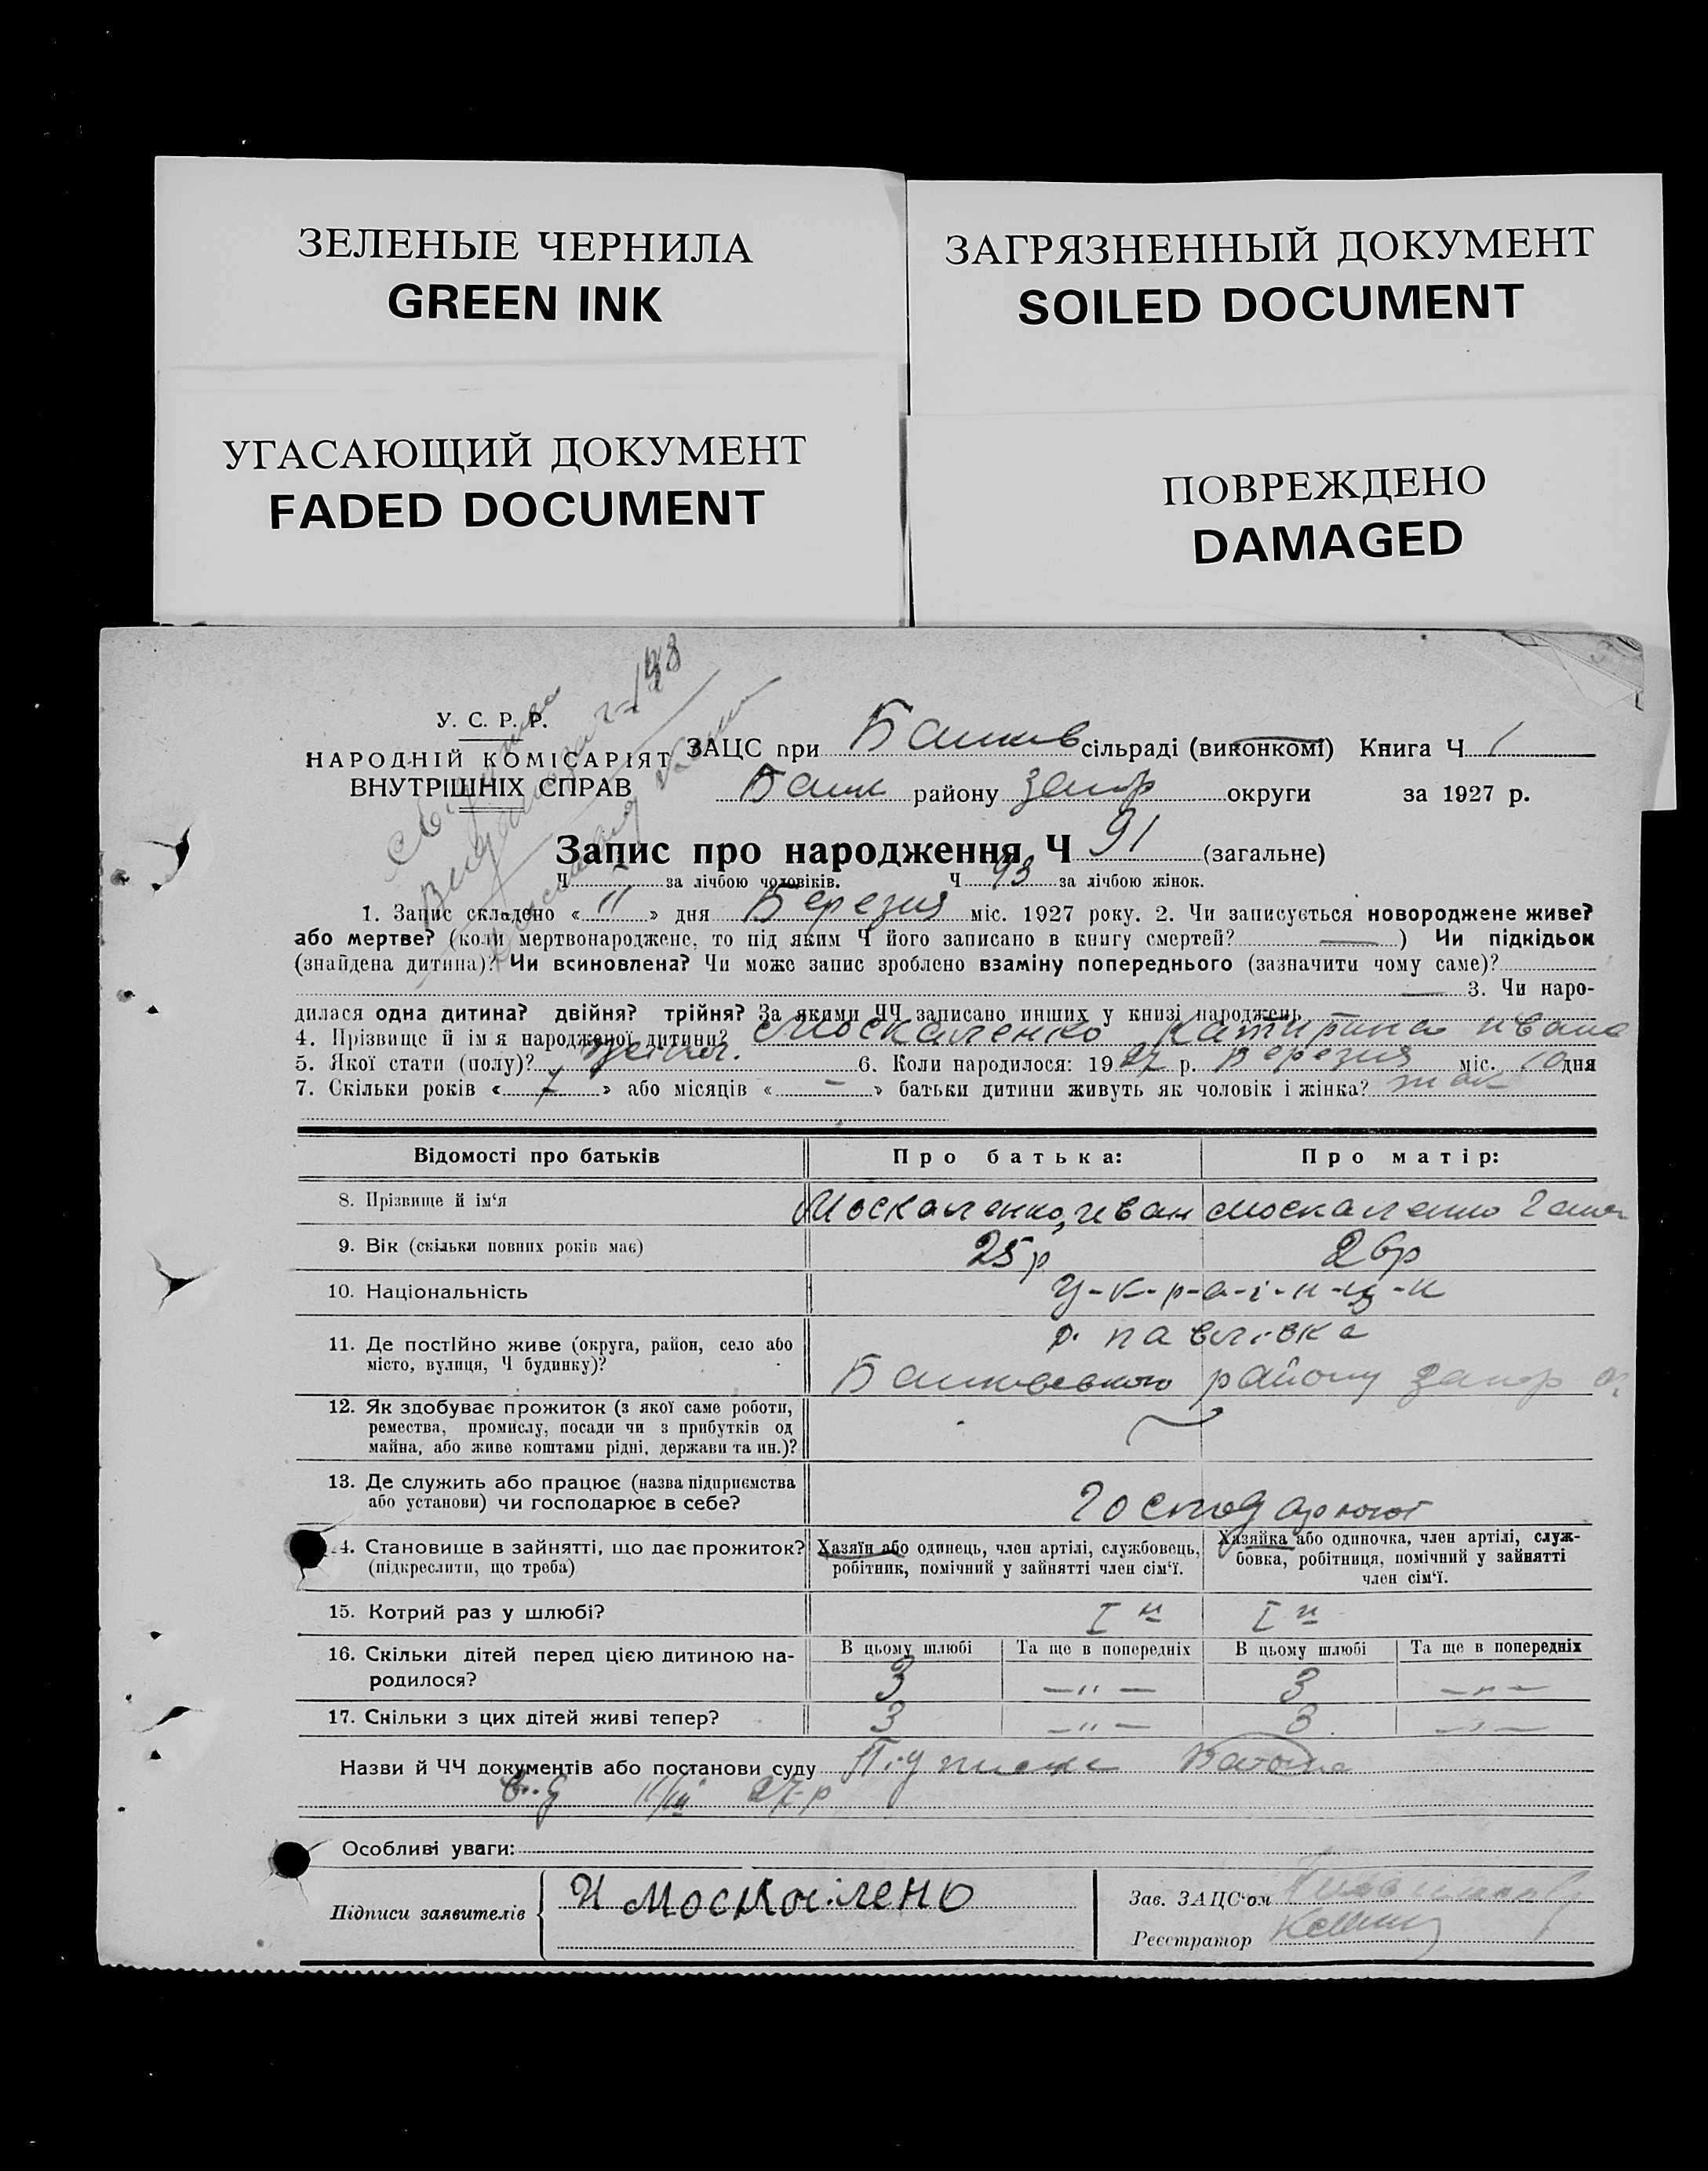 ЗЕЛЕНЫЕ ЧЕРНИЛА
GREEN INK
ЗАГРЯЗНЕННЫЙ ДОКУМЕНТ
SOILED DOCUMENT
УГАСАЮЩИЙ ДОКУМЕНТ
FADED DOCUMENT
ПОВРЕЖДЕНО
DAMAGED
У. С. Р. Р.
НАРОДНІЙ КОМІСАРІЯТ
ВНУТРІШНІХ СПРАВ
ЗАЦС при сільраді (виконкомі) Книга Ч 1
району Запор округи за 1927 р.
Запис про народження Ч 91 (загальне)
Ч за лічбою чоловіків. Ч 43 за лічбою жінок.
1. Запис складено « 11 » дня Березня міс. 1927 року. 2. Чи записується новороджене живе?
або мертве? (коли мертвонароджене, то під яким Ч його записано в книгу смертей? —) Чи підкідьок
(знайдена дитина)? Чи всиновлена? Чи може запис зроблено взаміну попереднього (зазначити чому саме)?
— 3. Чи наро-
дилася одна дитина? двійня? трійня? За якими ЧЧ записано инших у книзі народжень
4. Прізвище й ім'я народженої дитини? Москаленко Катирина Ивано
5. Якої стати (полу)? жіноч. 6. Коли народилося: 1927 р. Березня міс. 10 дня
7. Скільки років « 7 » або місяців « – » батьки дитини живуть як чоловік і жінка? так
Відомості про батьків
Про батька:
Про матір:
8. Прізвище й ім'я
Москаленко, Иван
Москаленко
9. Вік (скільки повних років має)
25 р
26 р
10. Національність
У-к-р-а-і-н-ц-и
11. Де постійно живе (округа, район, село або
місто, вулиця, Ч будинку)?
Павлівка
району Запор
12. Як здобуває прожиток (з якої саме роботи,
ремества, промислу, посади чи з прибутків од
майна, або живе коштами рідні, держави та ин.)?
13. Де служить або працює (назва підприємства
або установи) чи господарює в себе?
Господарюют
14. Становище в зайнятті, що дає прожиток?
(підкреслити, що треба)
Хазяїн або одинець, член артілі, службовець,
робітник, помічний у зайнятті член сім'ї.
Хазяйка або одиночка, член артілі, служ-
бовка, робітниця, помічний у зайнятті
член сім'ї.
15. Котрий раз у шлюбі?
I й
I й
16. Скільки дітей перед цією дитиною на-
родилося?
В цьому шлюбі
Та ще в попередніх
В цьому шлюбі
Та ще в попередніх
3
— " —
3
— " —
17. Скільки з цих дітей живі тепер?
3
— " —
3
— " —
Назви й ЧЧ документів або постанови суду Підписка Батька
від 11/III 27 р
Особливі уваги:
Підписи заявителів
И Москалено
Зав. ЗАЦС'ом
Реєстратор